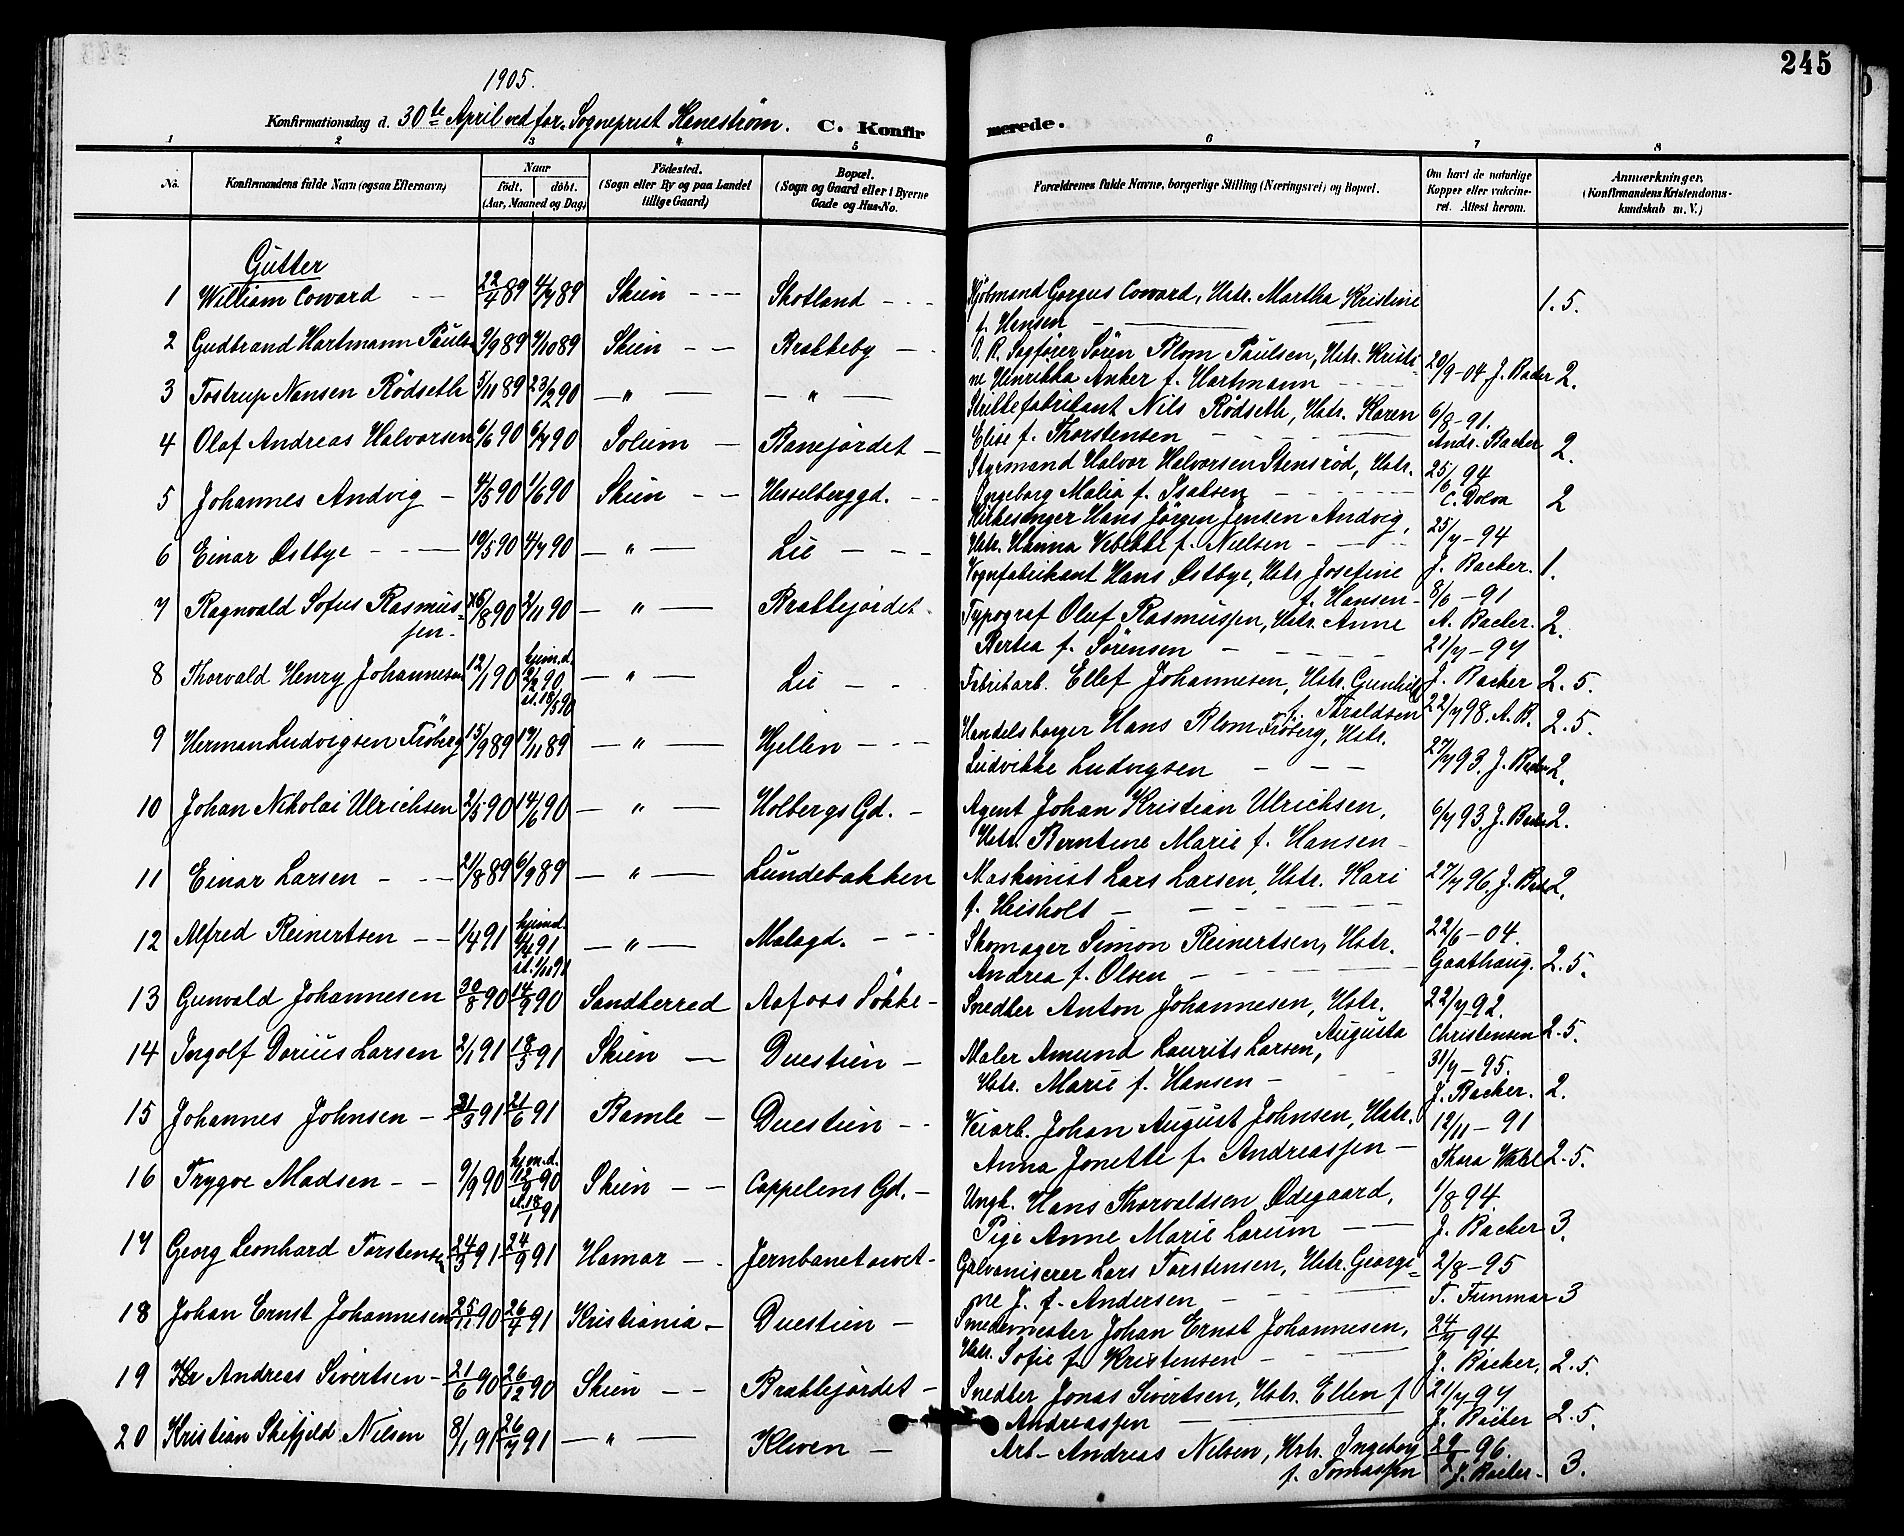 245
1905.
Konfirmationsdag d. 30te April ved for. Sogneprest Hanestrøm. C. Konfirmerede.
1 2 3 4 5 6 7 8
No.
Konfirmandens fulde Navn (ogsaa Efternavn)
Naar
født. døbt.
(Aar, Maaned og Dag)
Födested.
(Sogn eller By og paa Landet
tillige Gaard)
Bopæl.
(Sogn og Gaard eller i Byerne
Gade og Hus-No.
Forældrenes fulde Navne, borgerlige Stilling (Næringsvei) og Bopæl.
Om havt de naturlige
Kopper eller vakcine-
ret. Attest herom.
Anmærkninger.
(Konfirmandens Kristendoms-
kundskab m. V.)
Gutter
1 William Coward - - 22/4 89 4/7 89 Skien - - - Skotland - - - Hjólmand Gorgus Coward, Hstr. Martha Kristine 1.5.
f. Hensen
2 Gudbrand Hartmann Pauls 9/9 89 4/10 89 Skien - - Brakkeby - - O. R. Sagfører Søren Blom Paulsen, Hstr. Kristi-
ne Henrikka Anker f. Hartmann 20/9-04 J. Backer 2.
3 Tostrup Nansen Rödseth 5/11 89 23/2 90 - " - - " - Skillefabrikant Nils Rødseth, Hstr. Karen 6/8-91.
Elise f. Thorstensen Andr. Backer
4 Olaf Andreas Halvorsen 6/6 90 6/7 90 Solum - Banejordet - Styrmand Halvor Halvorsen Stensrød, Hstr. 25/6 94 2.
Ingeborg Malia f. Isaksen C. Dolva
5 Johannes Andvig - 4/5 90 1/6 90 Skien - - Hesselberggd. - - Kirkesanger Hans Jørgen Jensen Andvig, 2
Hstr. Hanna Vebekke f. Nielsen - 25/7-94
6 Einar Østbye - - - 19/5 90 4/7 90 - " - Lie - - - Vognfabrikant Hans Østbye, Hstr. Josefine J. Backer. 1.
f. Hansen - 8/6-91
7 Ragnvald Sofus Rasmus- 16/8 90 2/11 90 - " - Brakkejordet - Typograf Oluf Rasmussen, Hstr. Anne A. Backer. 2.
sen. Bertea f. Sørensen 21/7-97
8 Thorvald Henry Johannesen 12/1 90 hjem.d. 2/2 90 st. 18/5 90 - " - Lie - - Fabrikarb. Ellef Johannesen, Hstr. Gunhild J. Backer 2.5.
f. Taraldsen 22/7 98. A. B.
9 Herman Ludvigsen Fröberg 15/9 89 17/11 89 - " - Hjellen - - - Handelsborger Hans Blom Fröberg, Hstr. 2.5.
Ludvikke Ludvigsen - - - 27/7 93. J. Backer 2.
10 Johan Nikolai Ulrichsen 2/5 90 14/6 90 - " - Holbergs Gd. - Agent Johan Kristian Ulrichsen, 6/7 93. J. Backer 2.
Hstr. Berntine Marie f. Hansen -
11 Einar Larsen - - - 21/8 89 6/9 89 - " - Lundebakken Maskinist Lars Larsen, Hstr. Kari 27/7 96. J. Back 2.
f. Heisholt -
12 Alfred Reinertsen - - 1/4 91 hjemd. 6/4 91 st. 1/11 91 - " - Malagd. - - - Skomager Simon Reinertsen, Hstr. 22/6-04.
Andrea f. Olsen Gaathaug. 2.5.
13 Gunvald Johannesen 30/8 90 14/9 90 Sandherred Aafoss Løkke - Snedker Anton Johannesen, Hstr. 22/7 92.
Augusta Christensen 2.5.
14 Ingolf Dorius Larsen 2/1 91 18/3 91 Skien - Duestien - Maler Amund Laurits Larsen, 31/7-95.
Hstr. Marie f. Hansen - J. Backer. 2.
15 Johannes Johnsen - 31/3 91 21/6 91 Bamle - Duestien - - Veiarb. Johan August Johnsen, Hstr. 12/11-91
Anna Jonette f. Andreassen - Thora 2.5.
16 Trygve Madsen - - 9/9 90 hjem.d. 12/9 90 st. 18/1 91 Skien - - Cappelens Gd. - Ungk. Hans Thorvaldsen Ødegaard, 1/8 94
Pige Anne Marie Larum - - J. Backer 3.
17 Georg Leonhard Torstensen 24/3 91 24/9 91 Hamar - - Jernbanetorvet - Galvaniserer Lars Torstensen, Hstr. Georgi- 2/8-95
ne J. f. Andersen - T. Funmar 3
18 Johan Ernst Johannesen 25/11 90 26/4 91 Kristiania - Duestien - Smedemester Johan Ernst Johannesen, 24/7 94
Hstr. Sofie f. Kristensen - J. Backer, 2.5.
19 Kr Andreas Sivertsen - 21/6 90 26/12 90 Skien - - Brakkejordet - Snedker Jonas Sivertsen, Hstr. Ellen f. 21/7 97
Andreassen J. Backer 2.5.
20 Kristian Skifjeld Nilsen 8/1 91 26/7 91 - " - Kleven - Arb- Andreas Nelsen, Hstr. Ingeborg 29/2 96.
f. Tomassen J. Backer - 3.